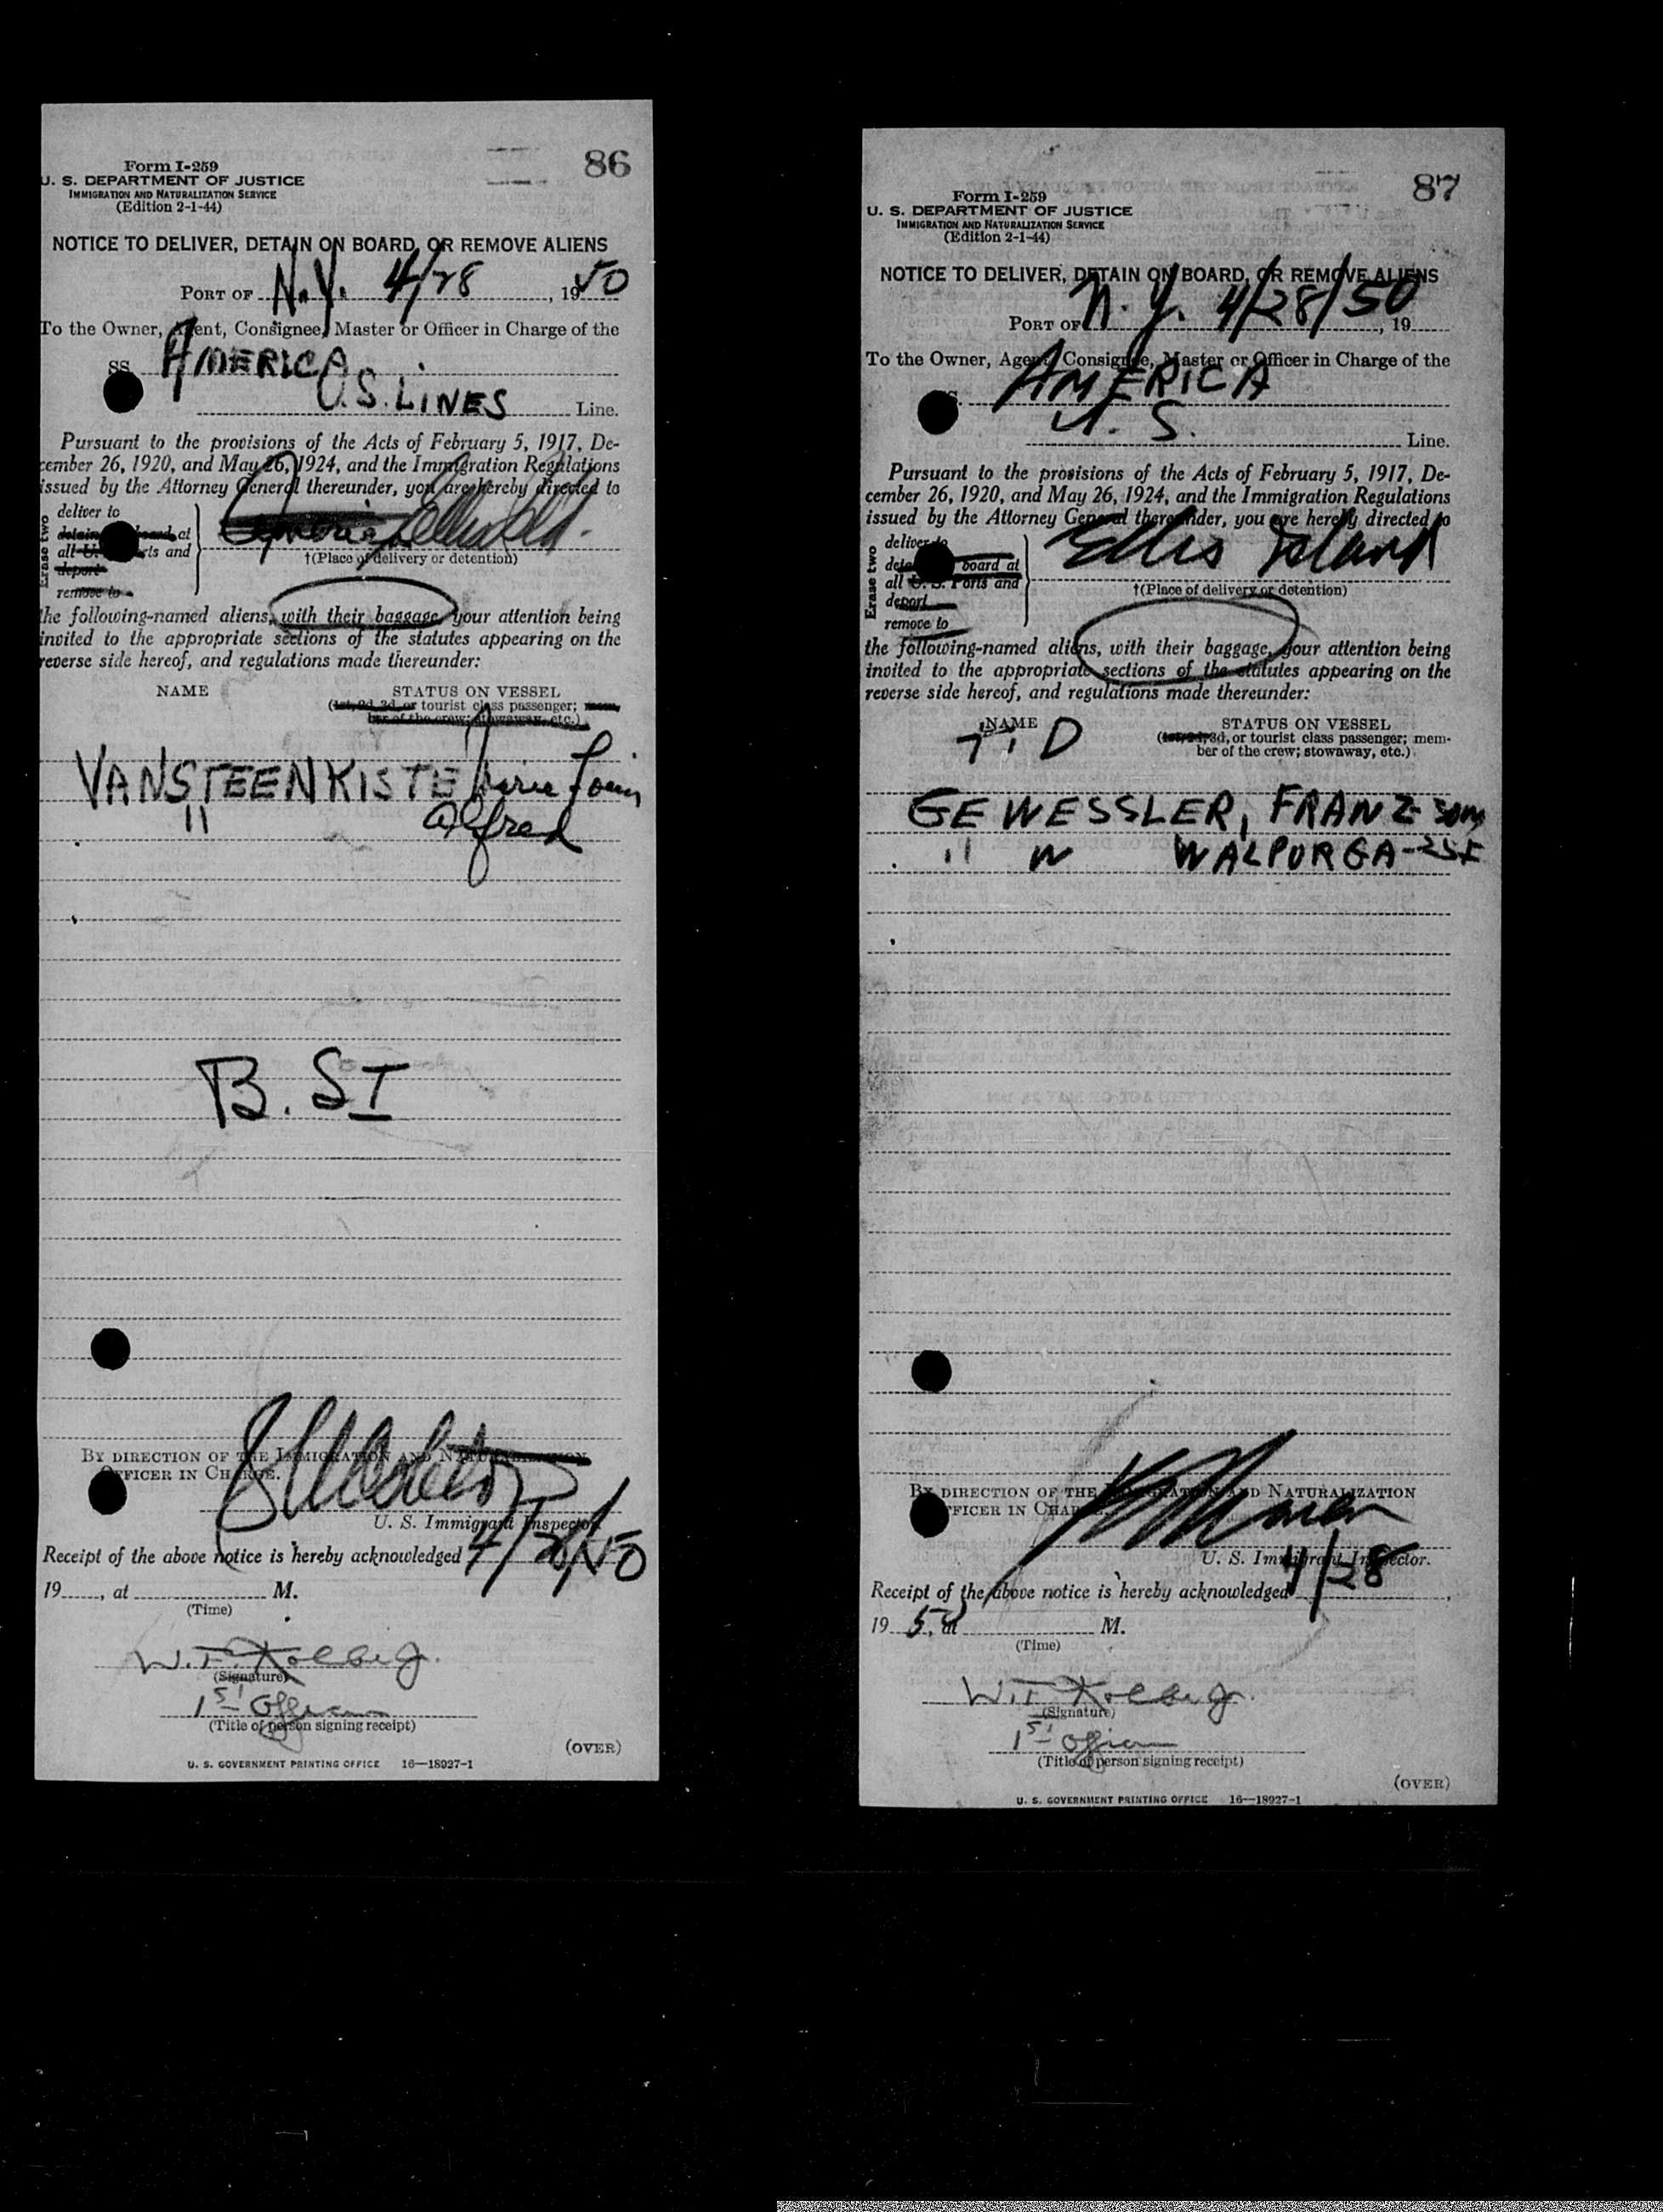 86
Form I-259
U. S. DEPARTMENT OF JUSTICE
IMMIGRATION AND NATURALIZATION SERVICE
(Edition 2-1-44)
NOTICE TO DELIVER, DETAIN ON BOARD, OR REMOVE ALIENS
PORT OF N.Y. 4/28, 1950
To the Owner, Agent, Consignee, Master or Officer in Charge of the
SS AMERICA
U.S. LINES Line.
Pursuant to the provisions of the Acts of February 5, 1917, De-
cember 26, 1920, and May 26, 1924, and the Immigration Regulations
issued by the Attorney General thereunder, you are hereby directed to
Erase two
deliver to
detain board at
all U. rts and
deport
remove to
†(Place of delivery or detention)
the following-named aliens, with their baggage, your attention being
invited to the appropriate sections of the statutes appearing on the
reverse side hereof, and regulations made thereunder:
NAME STATUS ON VESSEL
(1st, 2d, 3d, or tourist class passenger; mem-
ber of the crew; stowaway, etc.)
VANSTEENKISTE
" Alfred
B. SI
BY DIRECTION OF THE IMMIGRATION AND NATURALIZATION
OFFICER IN CHARGE.
U. S. Immigrant Inspector.
Receipt of the above notice is hereby acknowledged 4/28/50
19, at M.
(Time)
(Signature)
1st Officer
(Title of person signing receipt)
(OVER)
U. S. GOVERNMENT PRINTING OFFICE 16—18927-1
87
Form I-259
U. S. DEPARTMENT OF JUSTICE
IMMIGRATION AND NATURALIZATION SERVICE
(Edition 2-1-44)
NOTICE TO DELIVER, DETAIN ON BOARD, OR REMOVE ALIENS
PORT OF N.Y. 4/28/50, 19
To the Owner, Agent, Consignee, Master or Officer in Charge of the
AMERICA
U. S. Line.
Pursuant to the provisions of the Acts of February 5, 1917, De-
cember 26, 1920, and May 26, 1924, and the Immigration Regulations
issued by the Attorney General thereunder, you are hereby directed to
Erase two
deliver to
deta board at
all U. S. Ports and
deport
remove to
Ellis Island
†(Place of delivery or detention)
the following-named aliens, with their baggage, your attention being
invited to the appropriate sections of the statutes appearing on the
reverse side hereof, and regulations made thereunder:
NAME STATUS ON VESSEL
(1st, 2d, 3d, or tourist class passenger; mem-
ber of the crew; stowaway, etc.)
T. D
GEWESSLER, FRANZ 30M
" " WALPURGA-25F
BY DIRECTION OF THE IMMIGRATION AND NATURALIZATION
OFFICER IN CHARGE.
U. S. Immigrant Inspector.
Receipt of the above notice is hereby acknowledged 4/28,
1950, at M.
(Time)
(Signature)
1st Officer
(Title of person signing receipt)
(OVER)
U. S. GOVERNMENT PRINTING OFFICE 16—18927-1